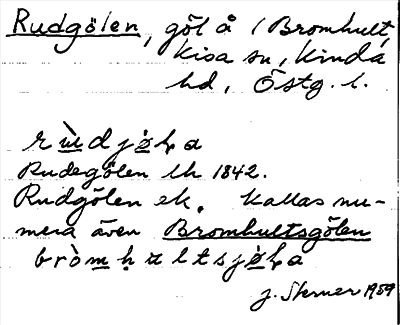 Rudgölen, göl å /Bromhult,
Kisa sn, Kinda
hd, Östg. l.
Rudegölen lk 1842.
Rudgölen ek. Kallas nu-
mera även Bromhultsgölen
J. Sterner 1959